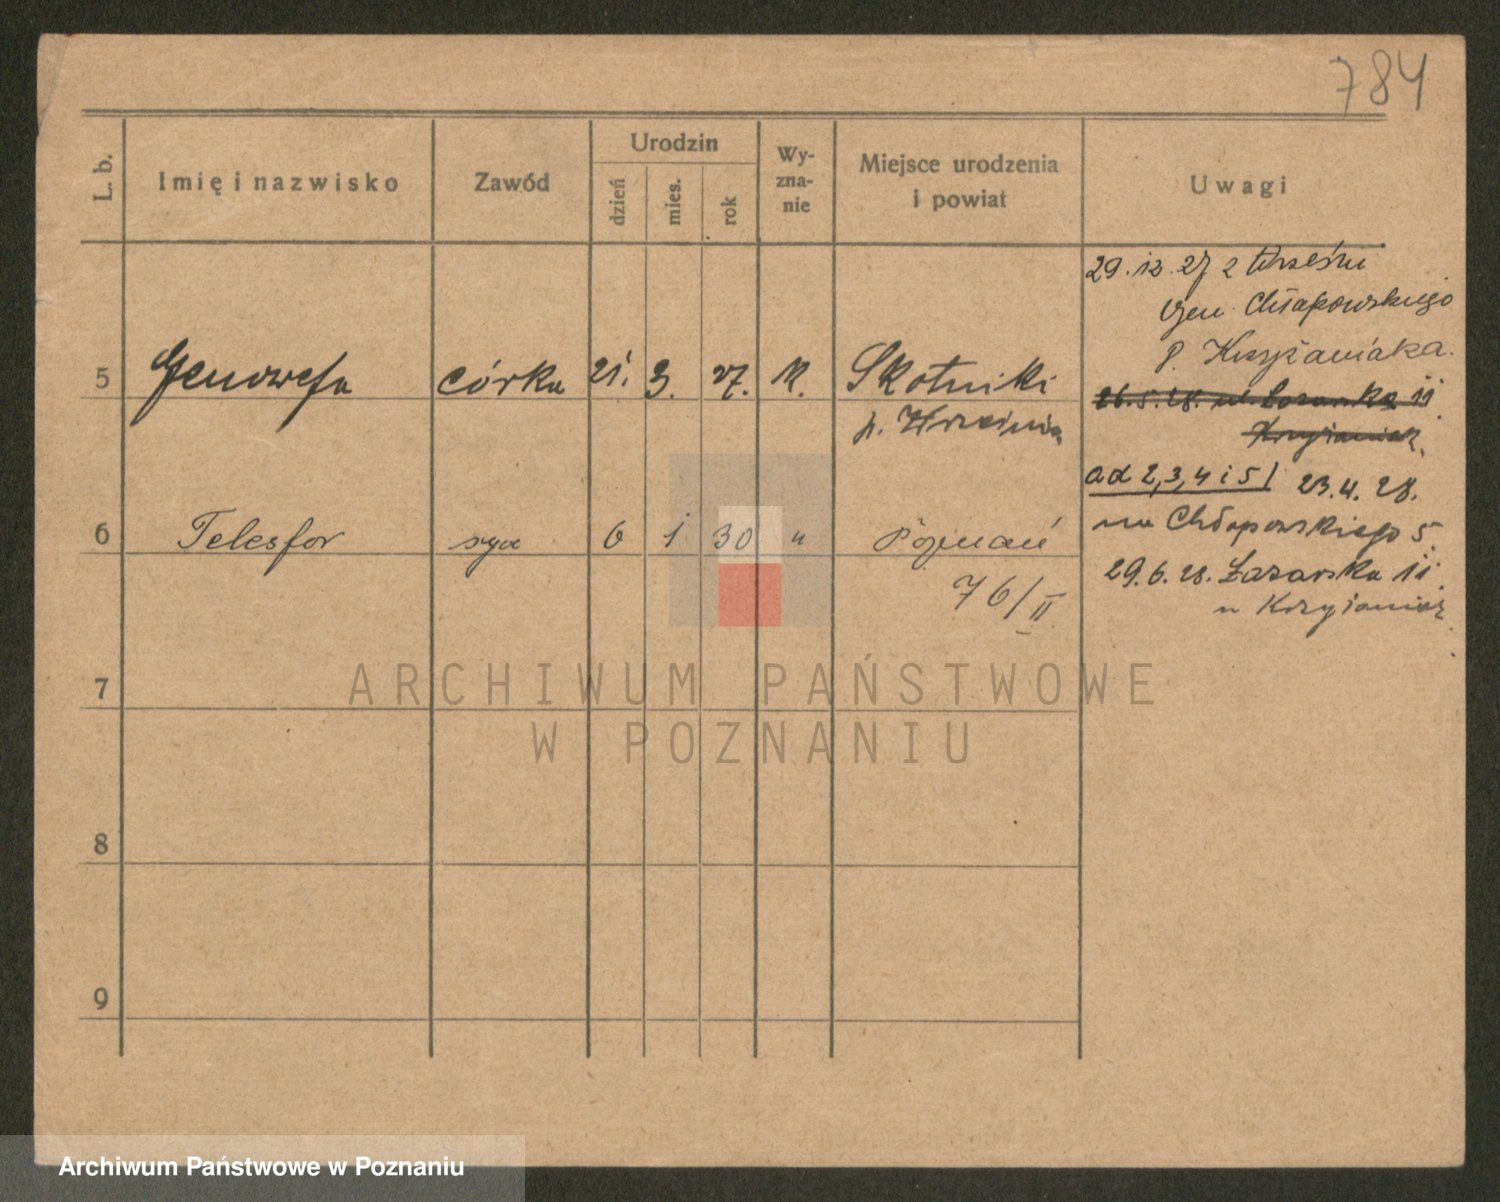 784
L. b.
Imię i nazwisko
Zawód
Urodzin
dzień
mies.
rok
Wy-
zna-
nie
Miejsce urodzenia
i powiat
Uwagi
29. 12. 27 z Wrześni
Chłapowskiego
p. Krzyżaniaka.
5 Genowefa córka 21. 3. 27. K. Skotniki
p. Września
26. 5. 28. ul. Łazarska 11
Krzyżaniak
ad 2, 3, 4 i 5 / 23. 4. 28.
na Chłapowskiego 5
6 Telesfor syn 6 1 30 " Poznań
76/II
29. 6. 28. Łazarska 11.
u Krzyżaniak
7
8
9
ARCHIWUM PAŃSTWOWE
W POZNANIU
Archiwum Państwowe w Poznaniu